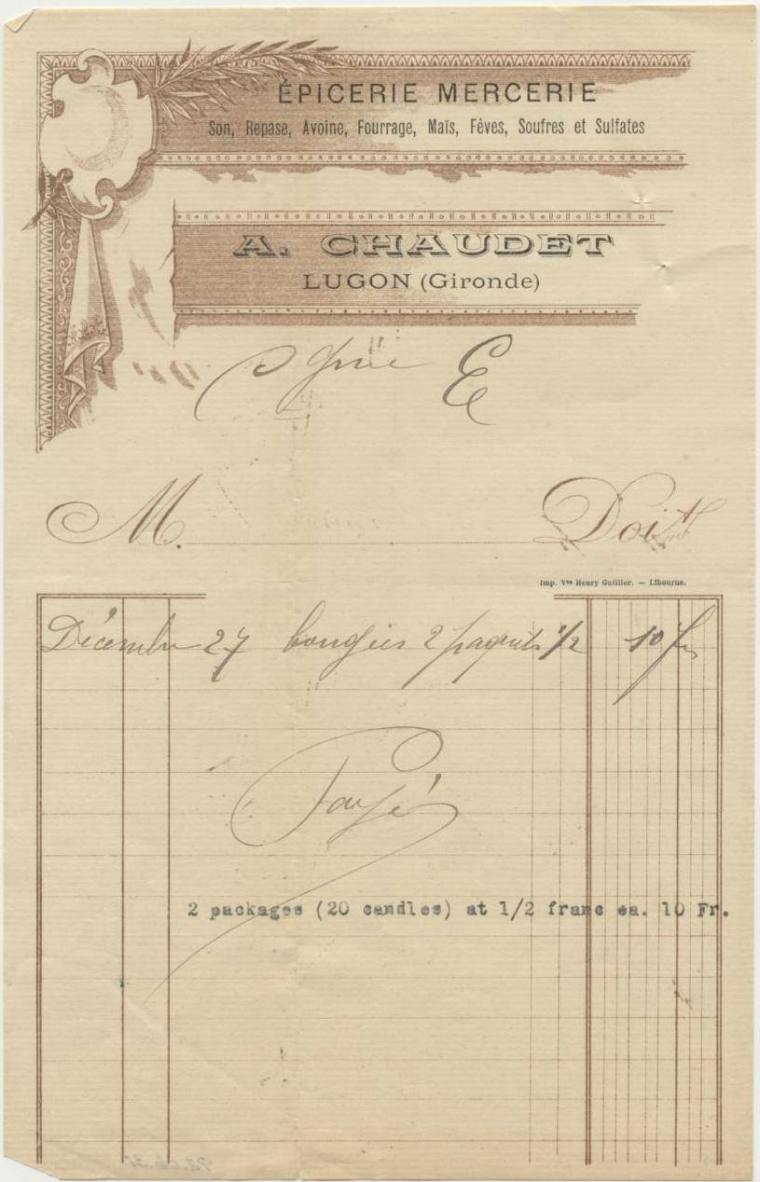 ÉPICERIE MERCERIE
Son, Repase, Avoine, Fourrage, Maïs, Fèves, Soufres et Sulfates
A. CHAUDET
LUGON (Gironde)
E
M. Doit
Imp. Vve Henry Guillier. — Libourne.
Décembre 27 bougies 2 paquets 1/2 10 frs
Payé
2 packages (20 candles) at 1/2 franc ea. 10 Fr.